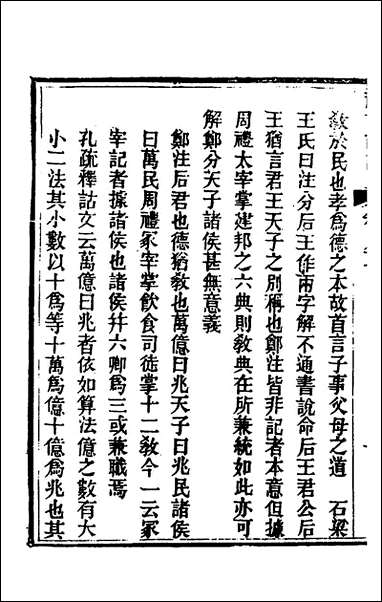 敎於民也孝爲德之本故首言子事父母之道　石梁
王氏曰注分后王作兩字解不通書說命后王君公后
王猶言君王天子之別稱也鄭注皆非記者本意但據
周禮太宰掌建邦之六典則敎典在所兼統如此亦可
解鄭分天子諸侯甚無意義
鄭注后君也德猶敎也萬億曰兆天子曰兆民諸侯
曰萬民周禮冢宰掌飮食司徒掌十二敎今一云冢
宰記者據諸侯也諸侯幷六卿爲三或兼職焉
孔疏釋詁文云萬億曰兆者依如算法億之數有大
小二法其小數以十爲等十萬爲億十億爲兆也其